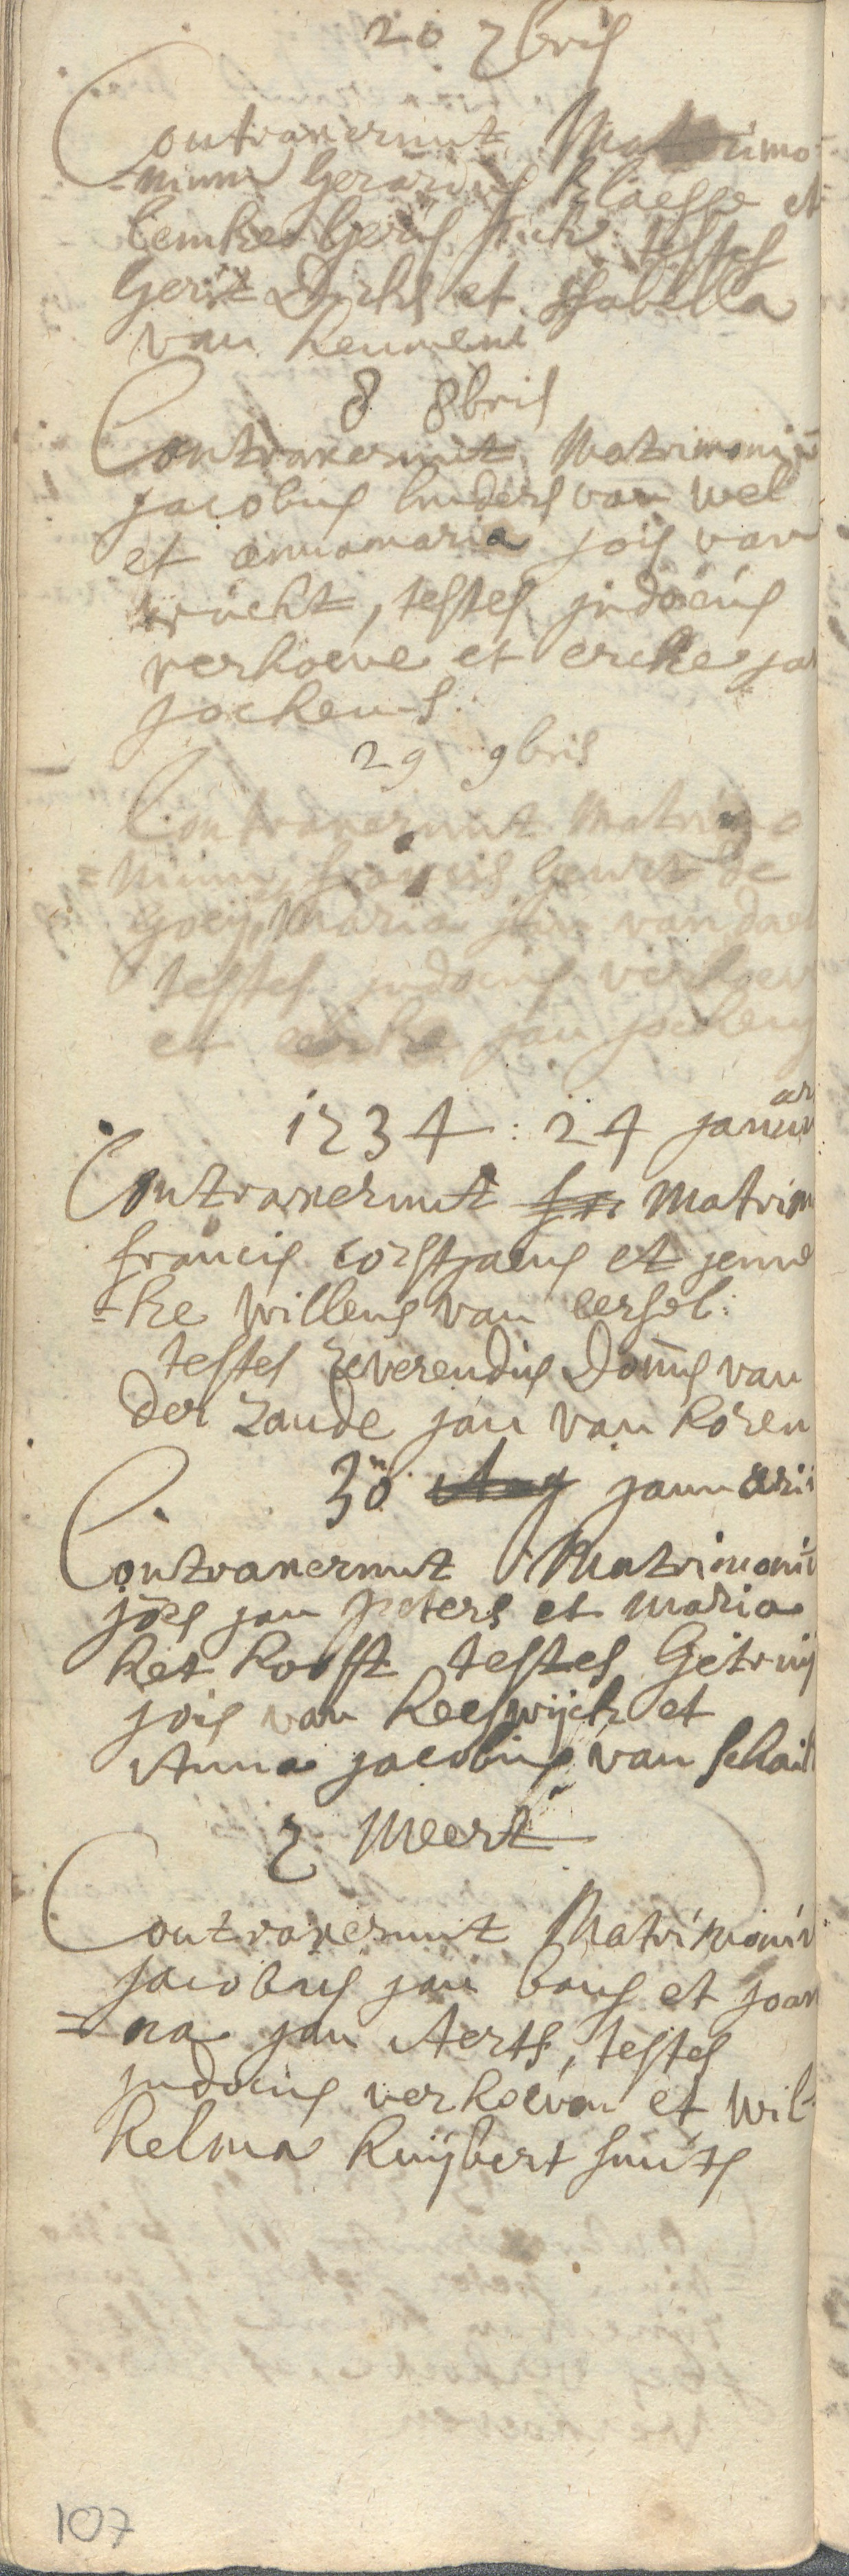 20 7bris
Contraxerunt Matrimo-
-nium Gerardus Klaesse et
lemke Geris testes
Gerit Dirks et Isabella
van heumen
8 8bris
Contraxerunt Matrimoniū
jacobus luders van wel
et annamaria jois van
testes judocus
verhoeve et ercke jan
jochems.
29 9bris
Contraxerunt Matrimo
=nium, francis Geurt de
Goeij, Maria jan van dael
testes judocus verhoev
et eerke jan jochems
1734: 24 januar
Contraxerunt Matrim
francis corstjaens et jenne
=ke Willems van eersel:
testes Reverendus Doms van
der zande jan van kozen
30 januarii
Contraxerunt Matrimoniū
jōes jan peters et Maria
het hooft testes Getruij
jois van heeswijck et
Anna jacobus van schaik
2 Meert
Contraxerunt Matrimoniū
jacobus jan bons et joan
=na jan Aerts, testes
judocus verhoeven et Wil-
helma huijbert smits
107